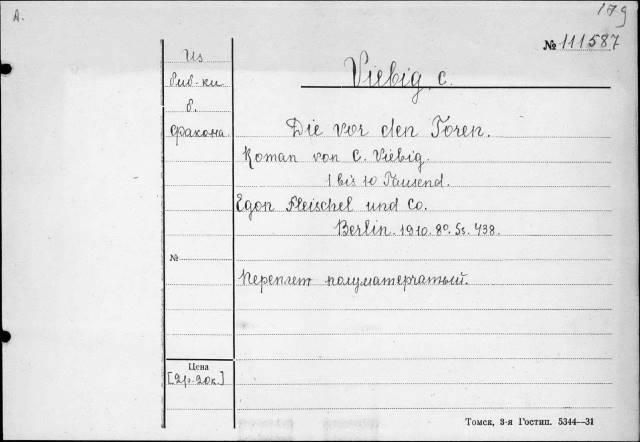 A.
179
№ 111587
Из
биб-ки
б.
Фахона.
Viebig, C.
Die vor den Toren.
Roman von C. Viebig.
1 bis 10 Tausend.
Egon Fleischel und Co.
Berlin. 1910. 8º. Ss. 438.
№
Переплет полуматерчатый.
Цена
[2р. 20к.]
Томск, 3-я Гостип. 5344—31